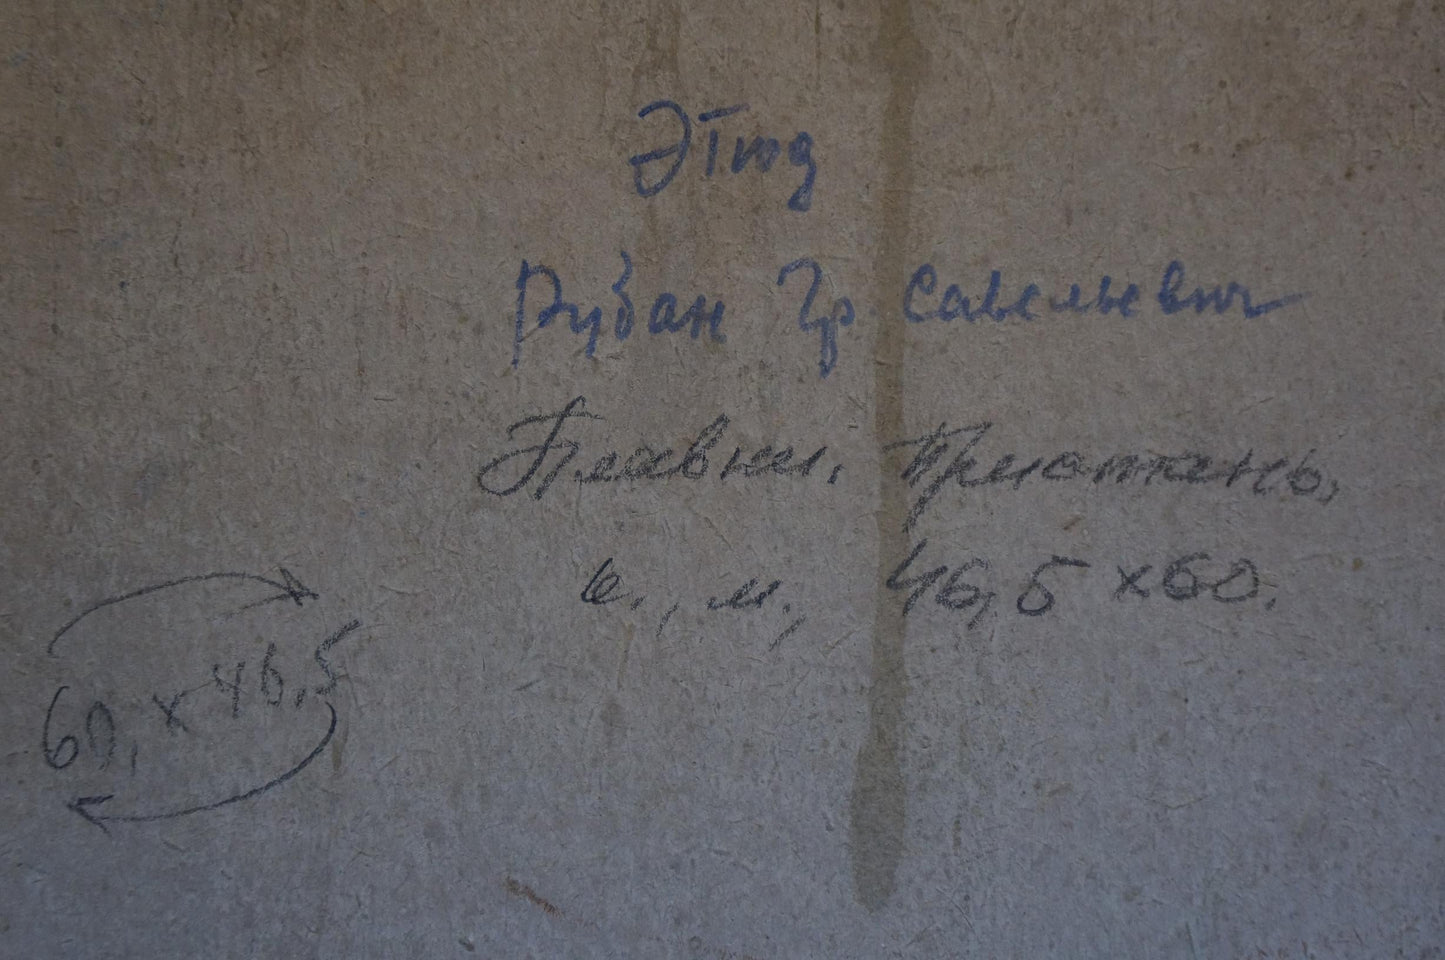 Этюд
Рубан Гр. Савельевич
Плавни. Пристань,
к., м., 46,5 x 60.
60, x 46,5